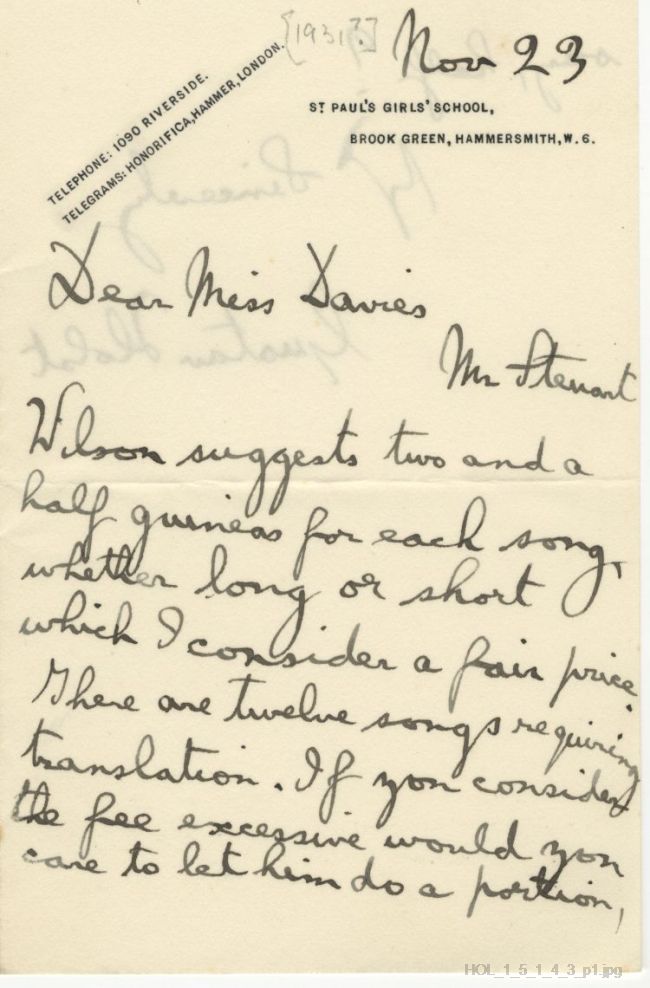 [1931?]
Nov 23
TELEPHONE: 1090 RIVERSIDE.
TELEGRAMS: HONORIFICA, HAMMER, LONDON.
ST PAUL'S GIRLS' SCHOOL,
BROOK GREEN, HAMMERSMITH, W. 6.
Dear Miss Davies
Mr Steuart
Wilson suggests two and a
half guineas for each song,
whether long or short
which I consider a fair price.
There are twelve songs requiring
translation. If you consider
the fee excessive would you
care to let him do a portion,
HOL_1_5_1_4_3_p1.jpg